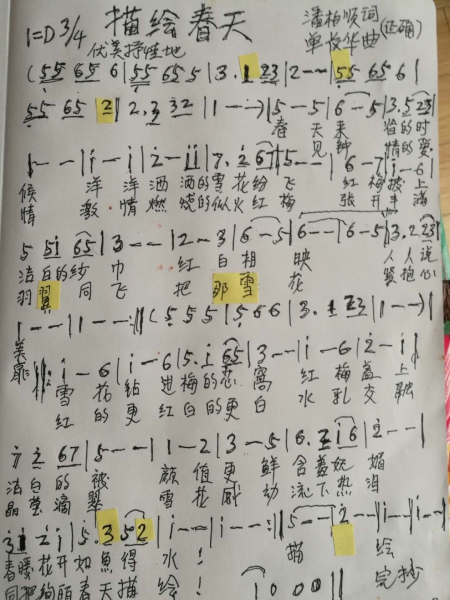 描绘春天
1=D 3/4 潘柏顺词 (正确)
优美抒情地 单牧华曲
(55 65 6 | 55 65 5 | 3. 1 23 | 2 - - | 55 65 6 |
55 65 2 | 2. 3 32 | 1 - - ) | 5 - 5 | 6 - 5 | 3. 5 23 |
春 天 来 的时
见 情的爱
1 - - | i - i | 2 - ii | 7. 2 67 | 5 - - | 6 - 7 | i - 6 |
候 洋 洋 洒 洒的雪花纷飞 红 梅披上
情 激 情 燃 烧的似火红梅 张 开 满
5 5i 65 | 3 - - | 2 - 3 | 6 - 5 | 6 - - | 6 - 5 | 3. 2 23 |
洁白的纱 巾 红 白 相 映 人人说
羽翼 同 飞 把 那 雪 花 抱心
1 - - | 1 - - :|| (5 5 5 | 5 6 6 | 3. 1 23 | 1 - - ) |
美
i - 6 | i - 6 | 5. i 65 | 3 - - | i - 6 | 2 - i |
雪 花 钻 进 梅的 窝 红 梅 盖 上
红 的 更 红 白的更 白 水 乳 交 融
2 67 | 5 - - | 1 - 2 | 3 - 5 | 6. 2 i6 | 2 - - |
洁白的 被 颜 值 更 鲜 含羞妩 媚
晶莹滴 翠 雪 花 感 动 流下热 泪
3i 2i | 5. 3 52 | i - - | i - - :|| 5 - - | 2 - - | i - - | i - - |
春暖花开如鱼得 水! 描 绘
同把绚丽春天描 绘! 完抄
i 0 0 0 ||